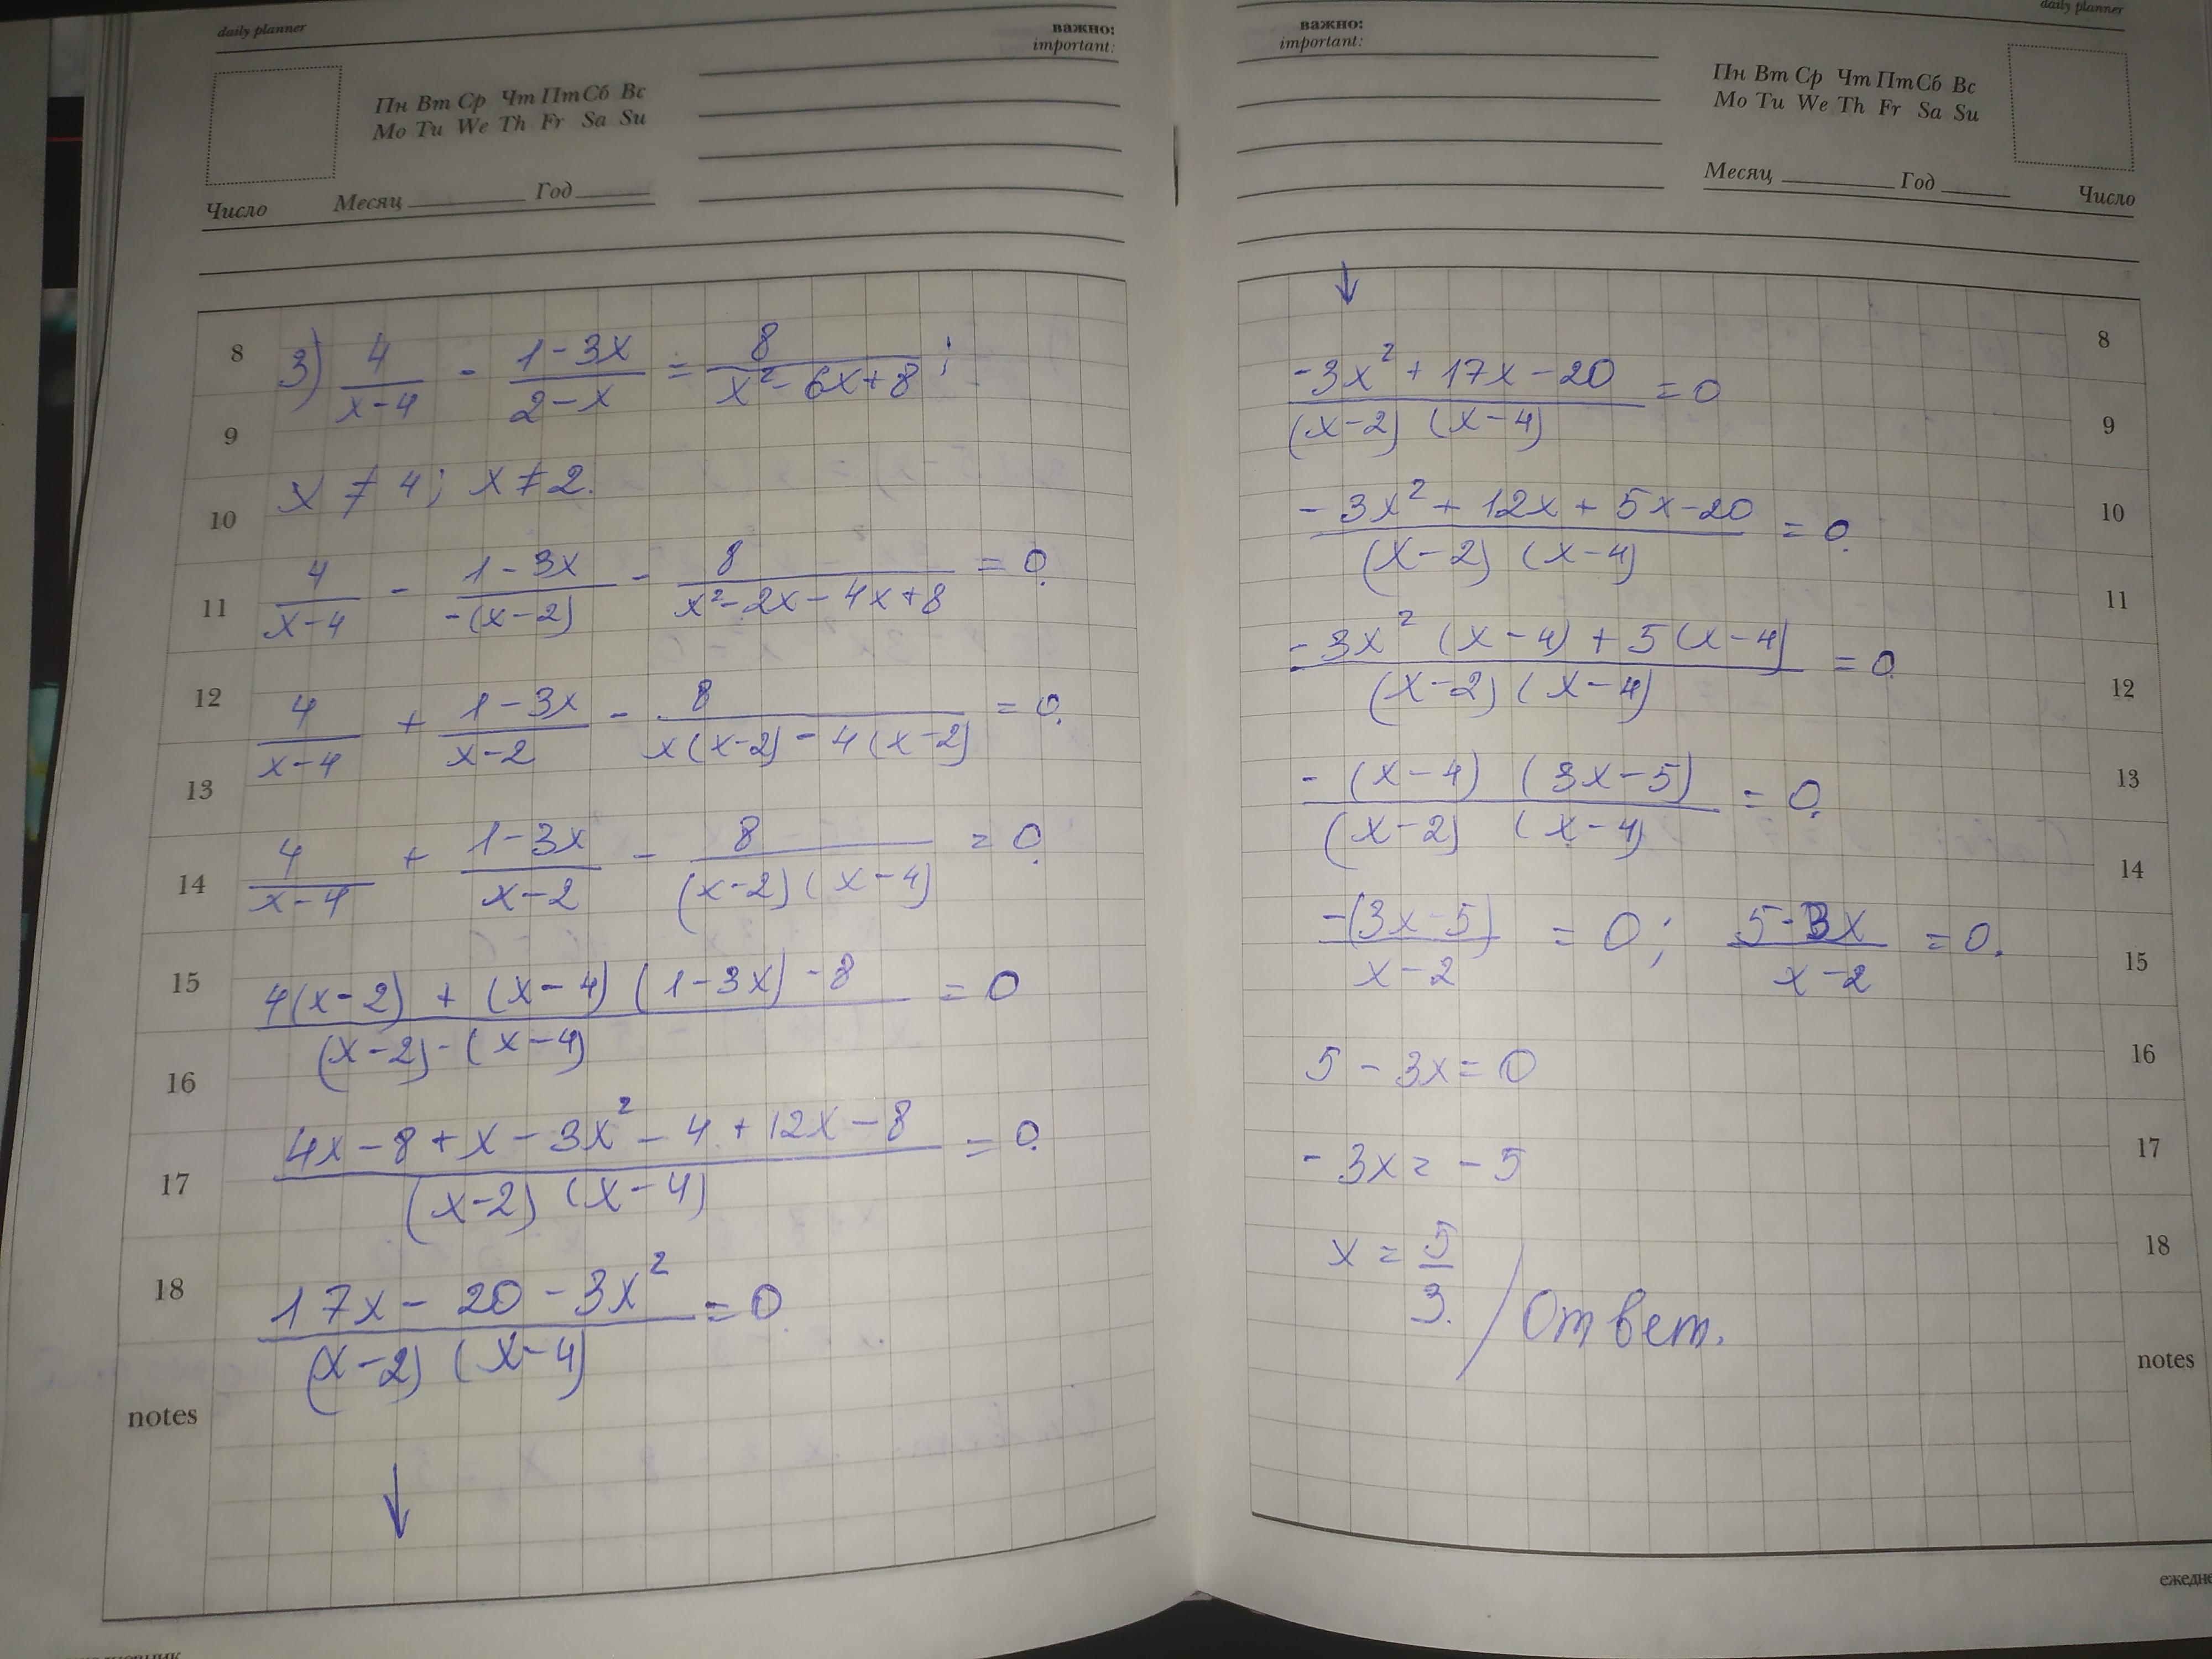 daily planner
важно:
important:
Пн Вт Ср Чт Пт Сб Вс
Mo Tu We Th Fr Sa Su
Число Месяц Год
8
3) 4/(x-4) - (1-3x)/(2-x) = 8/(x²-6x+8);
9
10
x ≠ 4; x ≠ 2.
11
4/(x-4) - (1-3x)/(-(x-2)) - 8/(x²-2x-4x+8) = 0.
12
4/(x-4) + (1-3x)/(x-2) - 8/(x(x-2)-4(x-2)) = 0.
13
14
4/(x-4) + (1-3x)/(x-2) - 8/((x-2)(x-4)) = 0.
15
(4(x-2) + (x-4)(1-3x) - 8)/((x-2)·(x-4)) = 0
16
17
(4x-8+x-3x²-4+12x-8)/((x-2)(x-4)) = 0.
18
(17x-20-3x²)/((x-2)(x-4)) = 0
notes
↓
daily planner
важно:
important:
Пн Вт Ср Чт Пт Сб Вс
Mo Tu We Th Fr Sa Su
Месяц Год Число
↓
8
(-3x²+17x-20)/((x-2)(x-4)) = 0
9
10
(-3x²+12x+5x-20)/((x-2)(x-4)) = 0.
11
(-3x²(x-4)+5(x-4))/((x-2)(x-4)) = 0
12
13
(-(x-4)(3x-5))/((x-2)(x-4)) = 0.
14
(-(3x-5))/(x-2) = 0; (5-3x)/(x-2) = 0.
15
5-3x=0
16
-3x=-5
17
x = 5/3. / Ответ.
18
notes